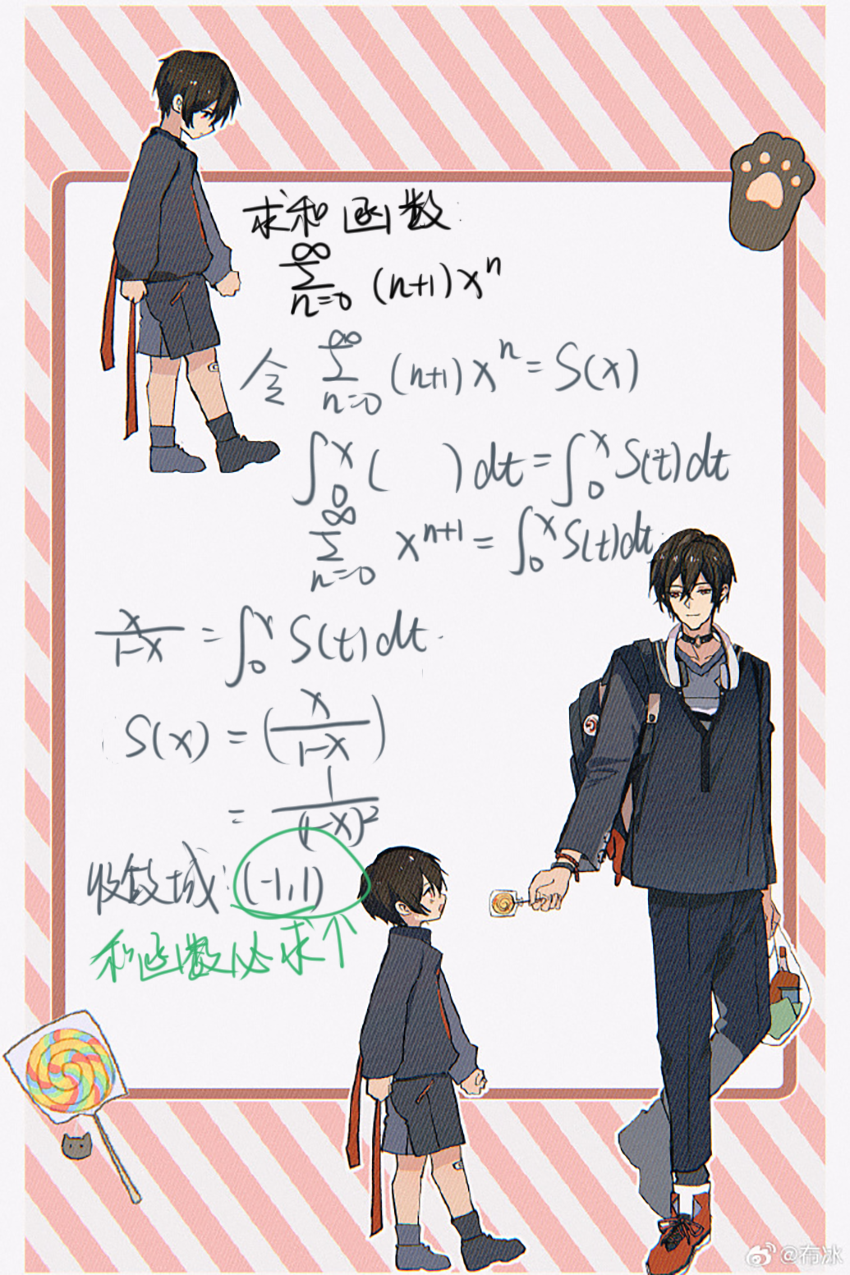 求和函数:
∞∑n=0 (n+1)xⁿ
令 ∞∑n=0 (n+1)xⁿ = S(x)
∫₀ˣ ( )dt = ∫₀ˣ S(t)dt
∞∑n=0 xⁿ⁺¹ = ∫₀ˣ S(t)dt.
x/(1-x) = ∫₀ˣ S(t)dt.
S(x) = (x/(1-x))
= 1/(1-x)²
收敛域: (-1,1)
和函数必求↑
@布冰